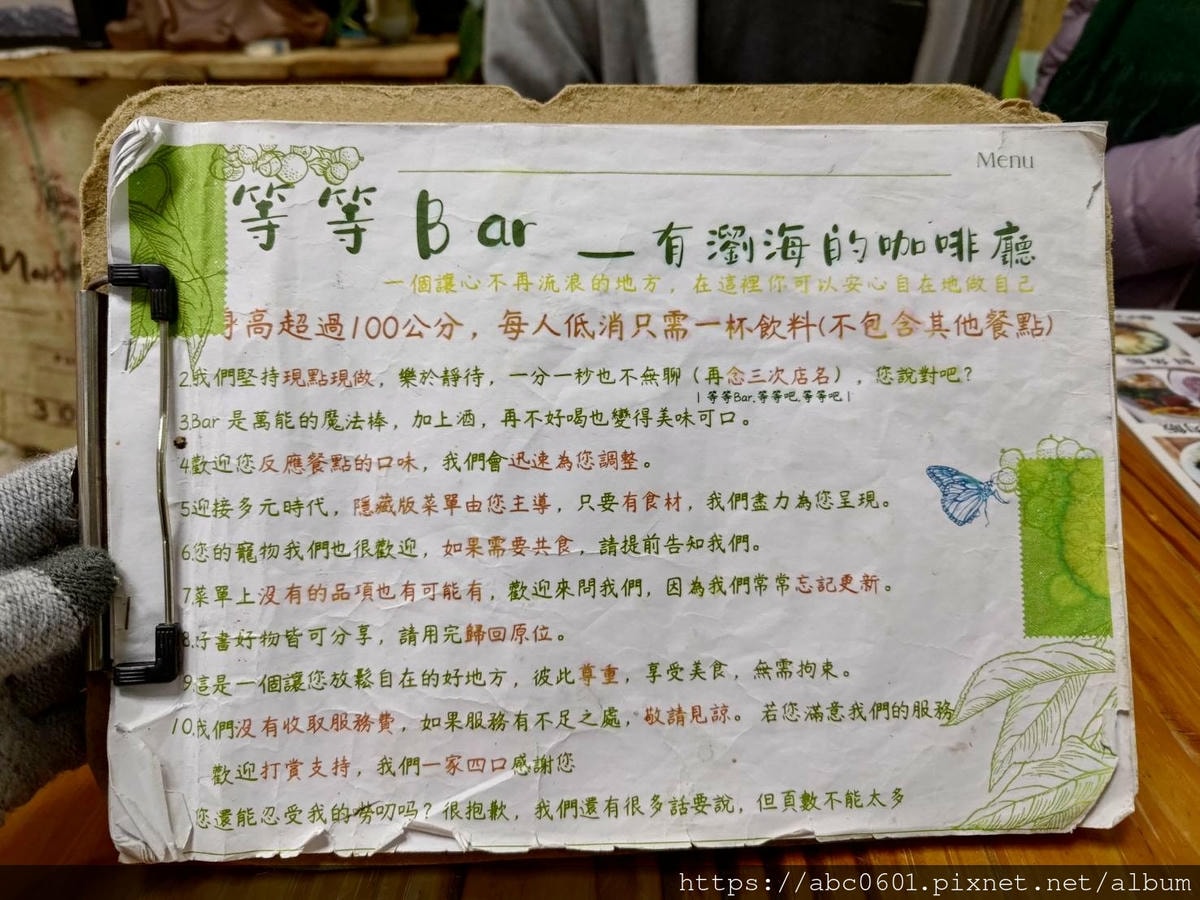 Menu
等等 Bar — 有瀏海的咖啡廳
一個讓心不再流浪的地方，在這裡你可以安心自在地做自己
身高超過100公分，每人低消只需一杯飲料(不包含其他餐點)
2.我們堅持現點現做，樂於靜待，一分一秒也不無聊（再念三次店名），您說對吧？
| 等等Bar.等等吧.等等吧 |
3.Bar 是萬能的魔法棒，加上酒，再不好喝也變得美味可口。
4歡迎您反應餐點的口味，我們會迅速為您調整。
5迎接多元時代，隱藏版菜單由您主導，只要有食材，我們盡力為您呈現。
6您的寵物我們也很歡迎，如果需要共食，請提前告知我們。
7.菜單上沒有的品項也有可能有，歡迎來問我們，因為我們常常忘記更新。
8.好書好物皆可分享，請用完歸回原位。
9.這是一個讓您放鬆自在的好地方，彼此尊重，享受美食，無需拘束。
10.我們沒有收取服務費，如果服務有不足之處，敬請見諒。若您滿意我們的服務
歡迎打賞支持，我們一家四口感謝您
您還能忍受我的嘮叨吗？很抱歉，我們還有很多話要說，但頁數不能太多
https://abc0601.pixnet.net/album